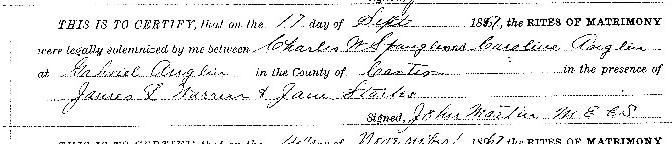 THIS IS TO CERTIFY, that on the 17 day of Sept 1867, the RITES OF MATRIMONY
were legally solemnized by me between Charles W Spangler and Caroline Anglin
at Gabriel Anglin in the County of Carter in the presence of
James L Warren & Jane
Signed, John Martin M. E. C. S.
THIS IS TO CERTIFY that on the day of November 1867 the RITES OF MATRIMONY